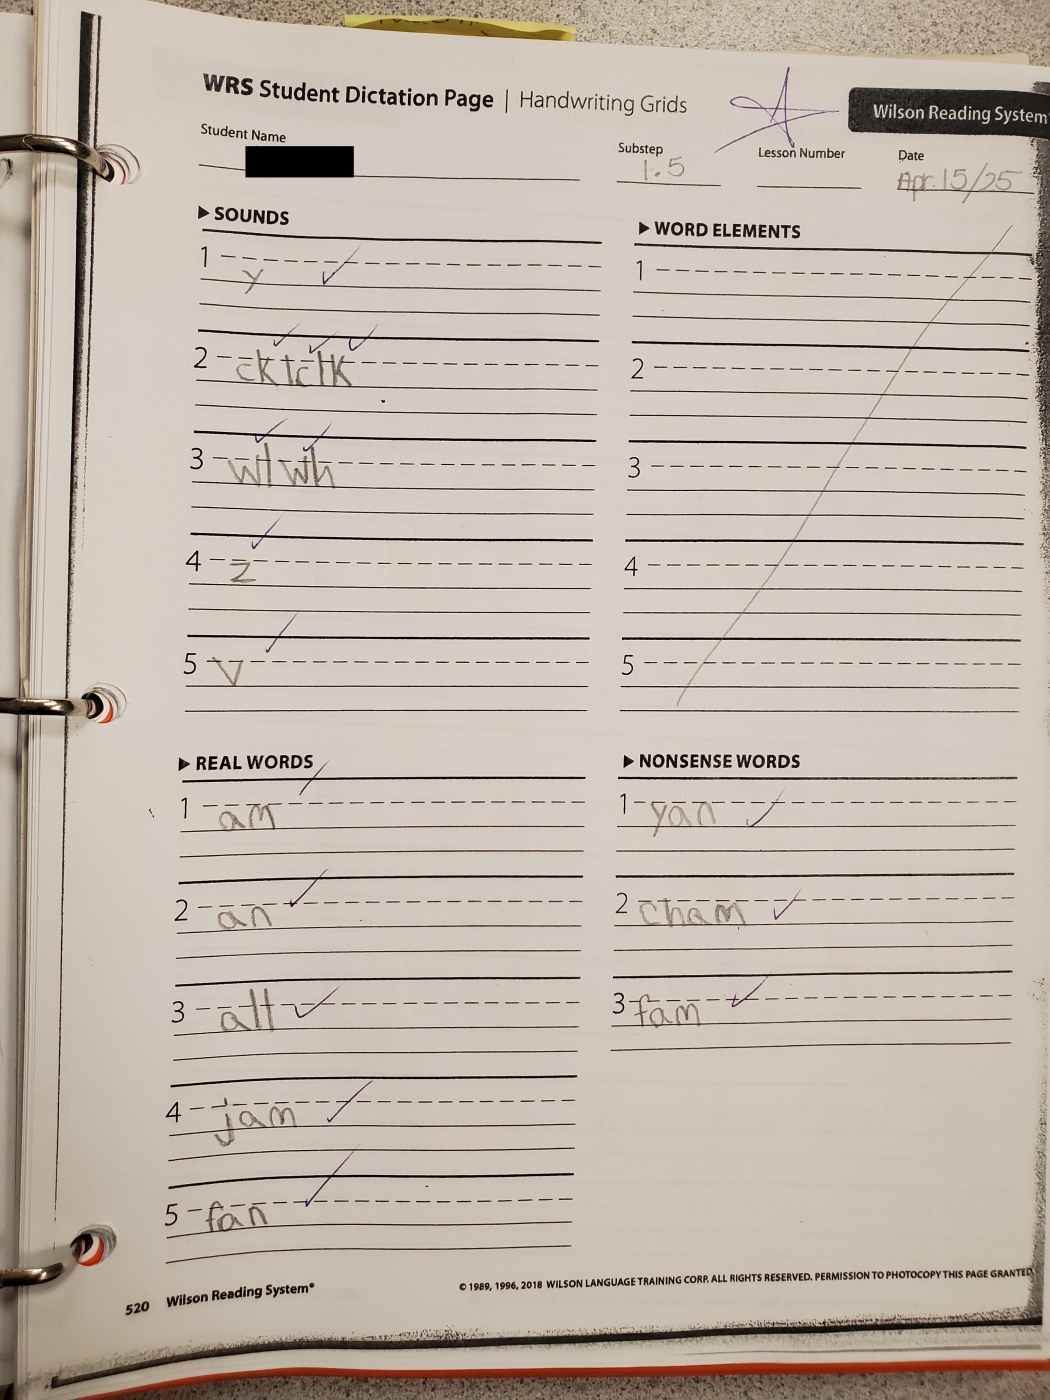 WRS Student Dictation Page | Handwriting Grids
Wilson Reading System
Student Name
Substep 1.5
Lesson Number
Date Apr. 15/25
▶ SOUNDS
1 y ✓
2 ck ✓ c ✓ k ✓
3 w ✓ wh ✓
4 z ✓
5 v ✓
▶ WORD ELEMENTS
1
2
3
4
5
▶ REAL WORDS
1 am ✓
2 an ✓
3 all ✓
4 jam ✓
5 fan ✓
▶ NONSENSE WORDS
1 yan ✓
2 cham ✓
3 fam ✓
520 Wilson Reading System®
© 1989, 1996, 2018 WILSON LANGUAGE TRAINING CORP. ALL RIGHTS RESERVED. PERMISSION TO PHOTOCOPY THIS PAGE GRANTED.